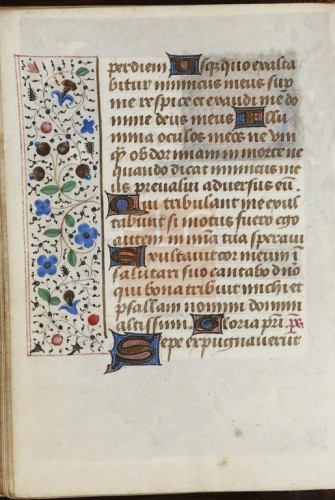 perdiem Usq̃quo exalta
bitur inimicus meus sup
me respice et exaudi me do
mine deus meus Illu
mina oculos meos ne vnı̄
q̃ȝ obdormiam in morte ne
quando dicat inimicus me
us preualui aduersus eū
Qui tribulant me exul
tabunt si motus fuero ego
autem in mīa tua speraui
Exultauit cor meum ī
salutari suo cantabo dn̄o
qui bona tribuit michi et
psallam nomini domini
altissimi Gloria pr̄i. ps̄
Sepe expugnauerūt